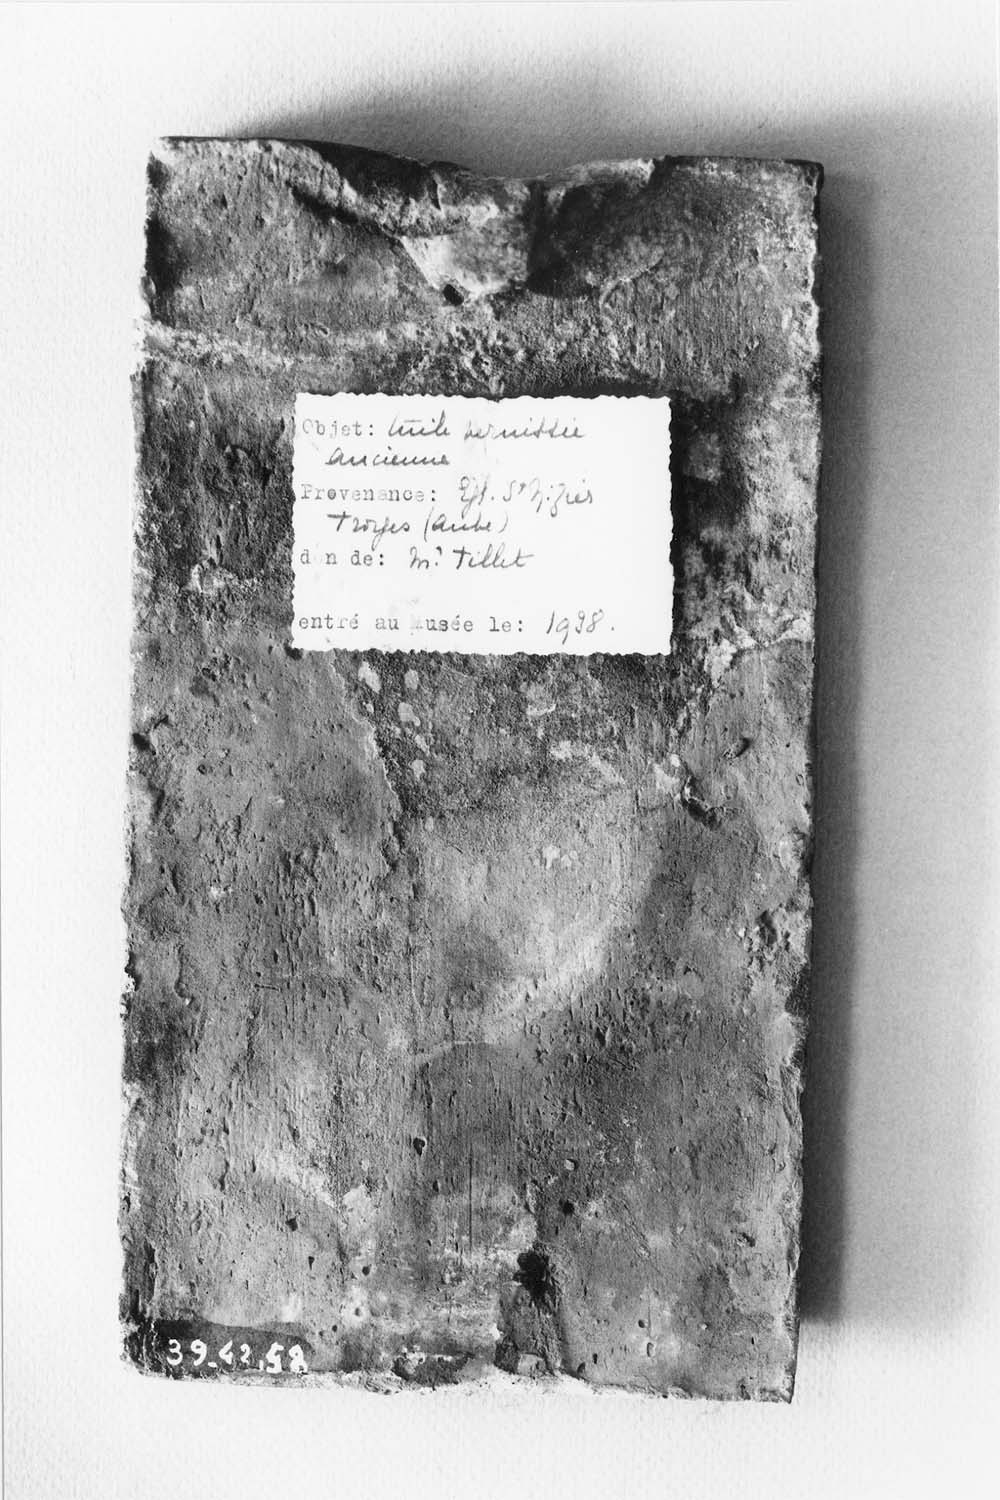 Objet: tuile vernissée
ancienne
Provenance: Egl. St Nizier
Troyes (Aube)
don de: Mr Tillet
entré au Musée le: 1938.
39.42.52